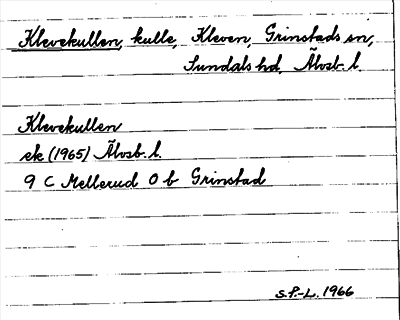 Klevekullen, kulle, Kleven, Grinstads sn,
Sundals hd, Älvsb. l.
Klevekullen
ek (1965) Älvsb. l.
9 C Mellerud O b Grinstad
S.P.-L. 1966